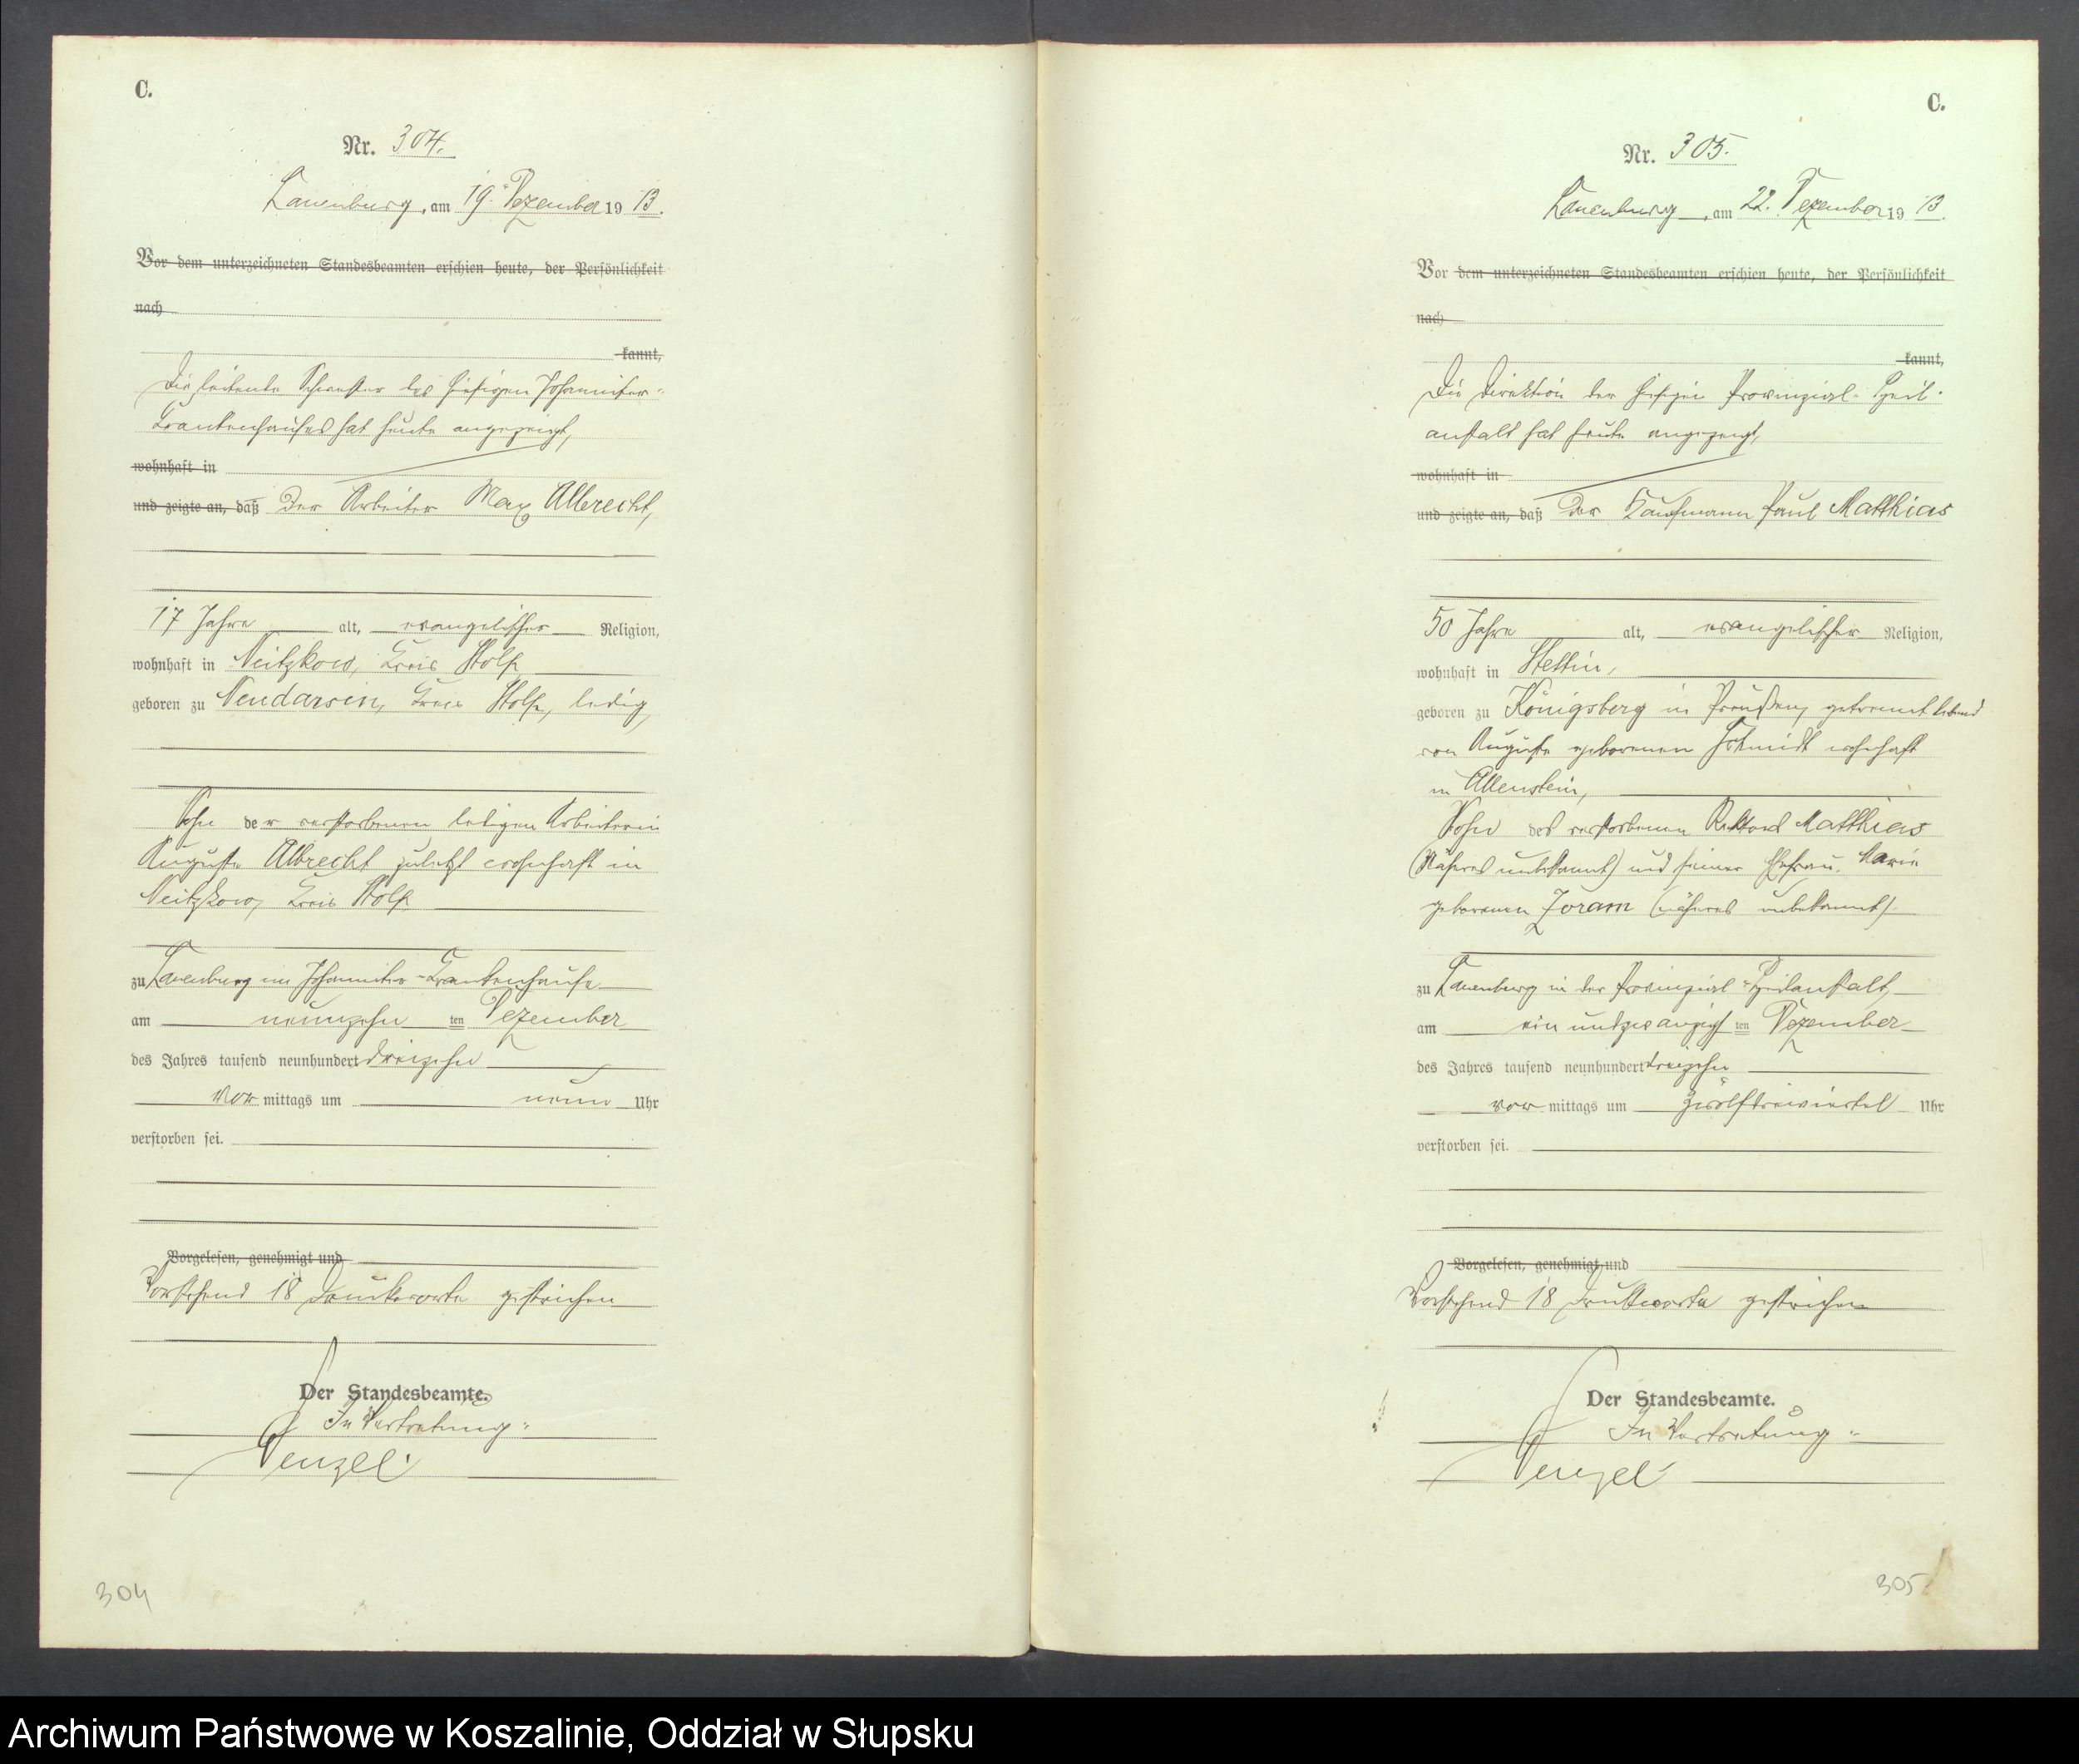 C.
Nr. 304.
Lauenburg, am 19. Dezember 19 13.
Vor dem unterzeichneten Standesbeamten erschien heute, der Persönlichkeit
nach
kannt,
Die leitende Schwester des hiesigen Johanniter-
Krankenhauses hat heute angezeigt,
wohnhaft in
und zeigte an, daß der Arbeiter Max Albrecht,
17 Jahre alt, evangelischer Religion,
wohnhaft in Neitzkow, Kreis Stolp
geboren zu Neudarsin, Kreis Stolp, ledig,
Sohn der verstorbenen ledigen Arbeiterin
Auguste Albrecht zuletzt wohnhaft in
Neitzkow, Kreis Stolp
zu Lauenburg im Johanniter-Krankenhause
am neunzehn ten Dezember
des Jahres tausend neunhundert dreizehn
vor mittags um neun Uhr
verstorben sei.
Vorgelesen, genehmigt und
Vorstehend 18 Druckworte gestrichen
Der Standesbeamte.
In Vertretung:
Wenzel
304
C.
Nr. 305.
Lauenburg, am 22. Dezember 19 13.
Vor dem unterzeichneten Standesbeamten erschien heute, der Persönlichkeit
nach
kannt,
Die Direktion der hiesigen Provinzial-Heil-
anstalt hat heute angezeigt,
wohnhaft in
und zeigte an, daß der Kaufmann Paul Matthias
50 Jahre alt, evangelischer Religion,
wohnhaft in Stettin,
geboren zu Königsberg in Preußen, getrennt lebend
von Auguste geborenen Schmidt wohnhaft
in Allenstein,
Sohn des verstorbenen Rektors Matthias
(Näheres unbekannt) und seiner Ehefrau Marie
geborenen Joram (näheres unbekannt)
zu Lauenburg in der Provinzial-Heilanstalt,
am ein und zwanzigsten Dezember
des Jahres tausend neunhundert dreizehn
vor mittags um zwölfdreiviertel Uhr
verstorben sei.
Vorgelesen, genehmigt und
Vorstehend 18 Druckworte gestrichen
Der Standesbeamte.
In Vertretung:
Wenzel
305
Archiwum Państwowe w Koszalinie, Oddział w Słupsku